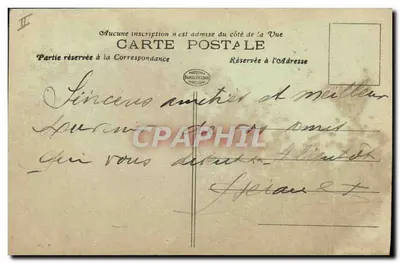 II
Aucune inscription n'est admise du côté de la Vue
CARTE POSTALE
Partie réservée à la Correspondance
Réservée à l'Adresse
Sincères amitiés et meilleur
de vos amis
CPARAMA.COM
qui vous disent A bientôt